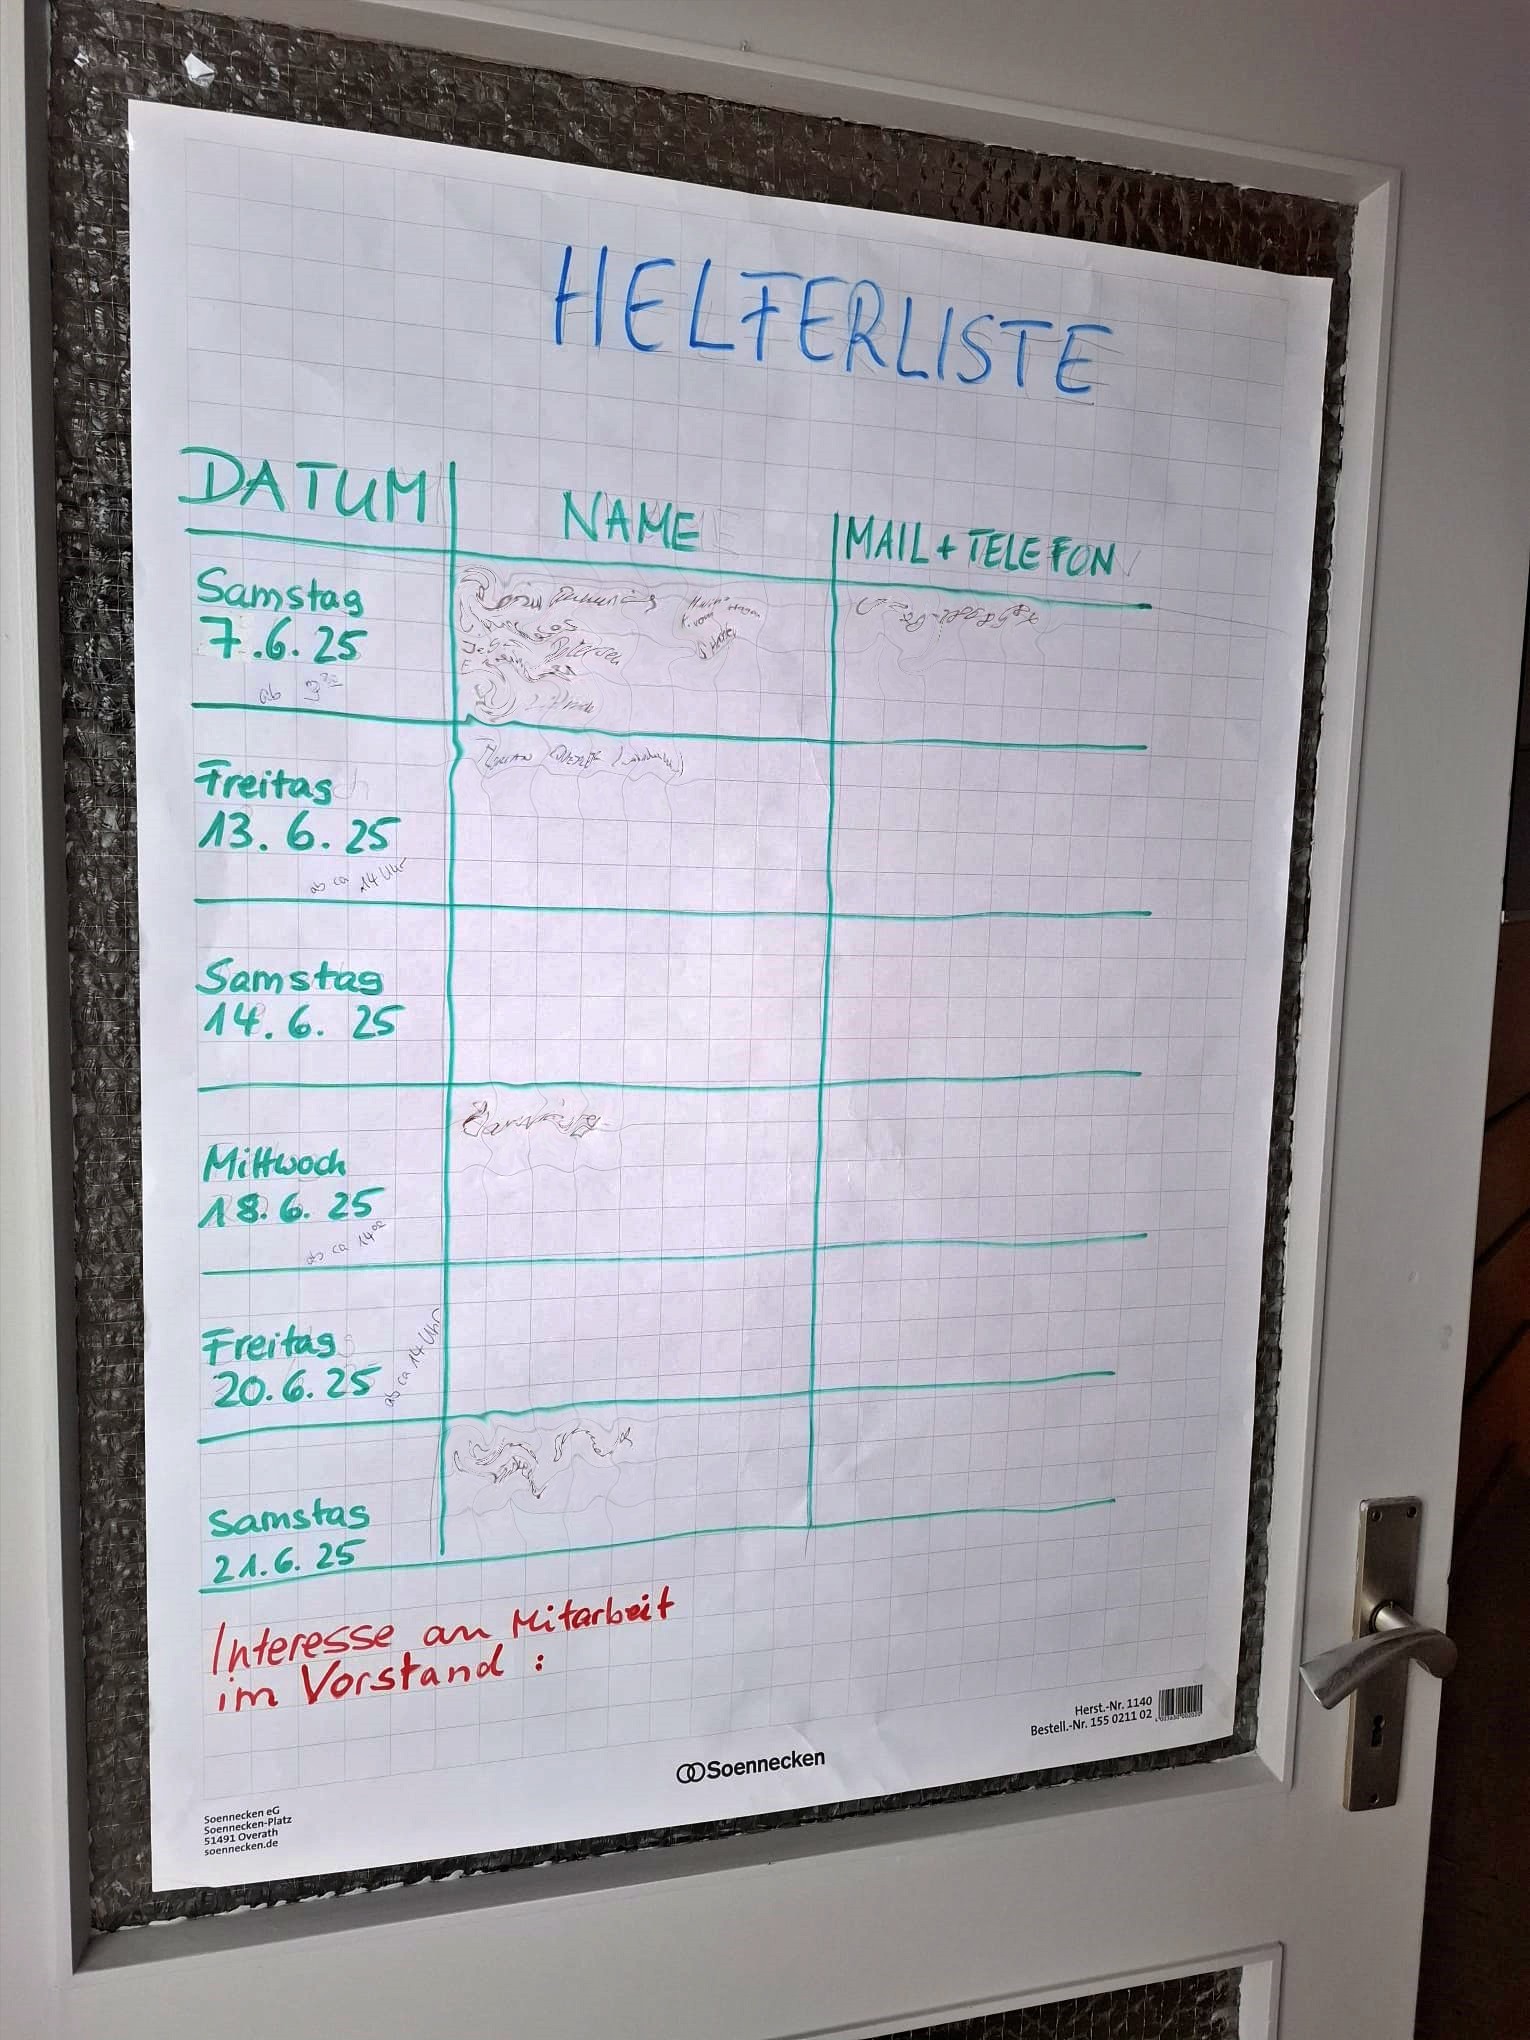 HELFERLISTE
DATUM NAME MAIL + TELEFON
Samstag
7.6.25
ab
Petersen
Freitag
13.6.25
ab ca 14 Uhr
Samstag
14.6.25
Mittwoch
18.6.25
ab ca 14⁰⁰
Freitag
20.6.25
ab ca 14 Uhr
Samstag
21.6.25
Interesse an Mitarbeit
im Vorstand :
Herst.-Nr. 1140
Bestell.-Nr. 155 0211 02
Soennecken
Soennecken eG
Soennecken-Platz
51491 Overath
soennecken.de